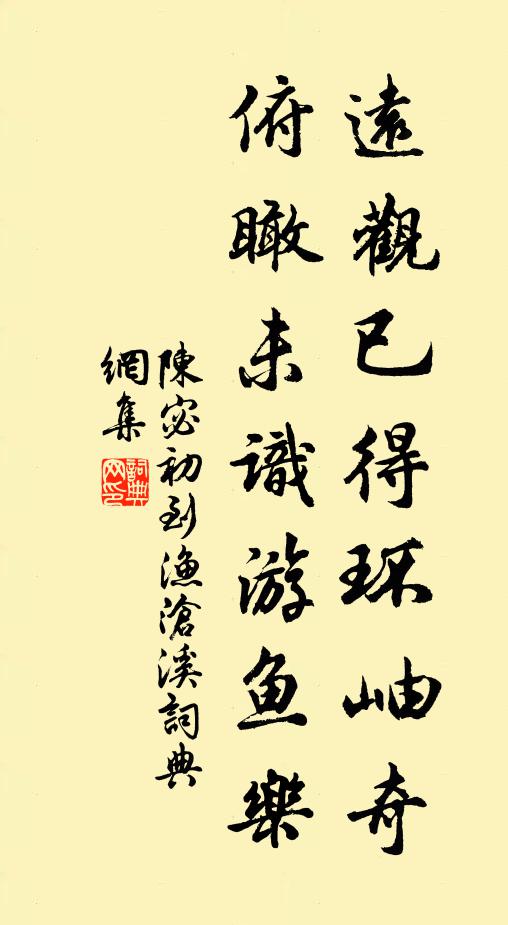 遠觀已得环岫奇
俯瞰未識游鱼樂
陳宓初到渔滄溪詞典
網集
詞典
网印